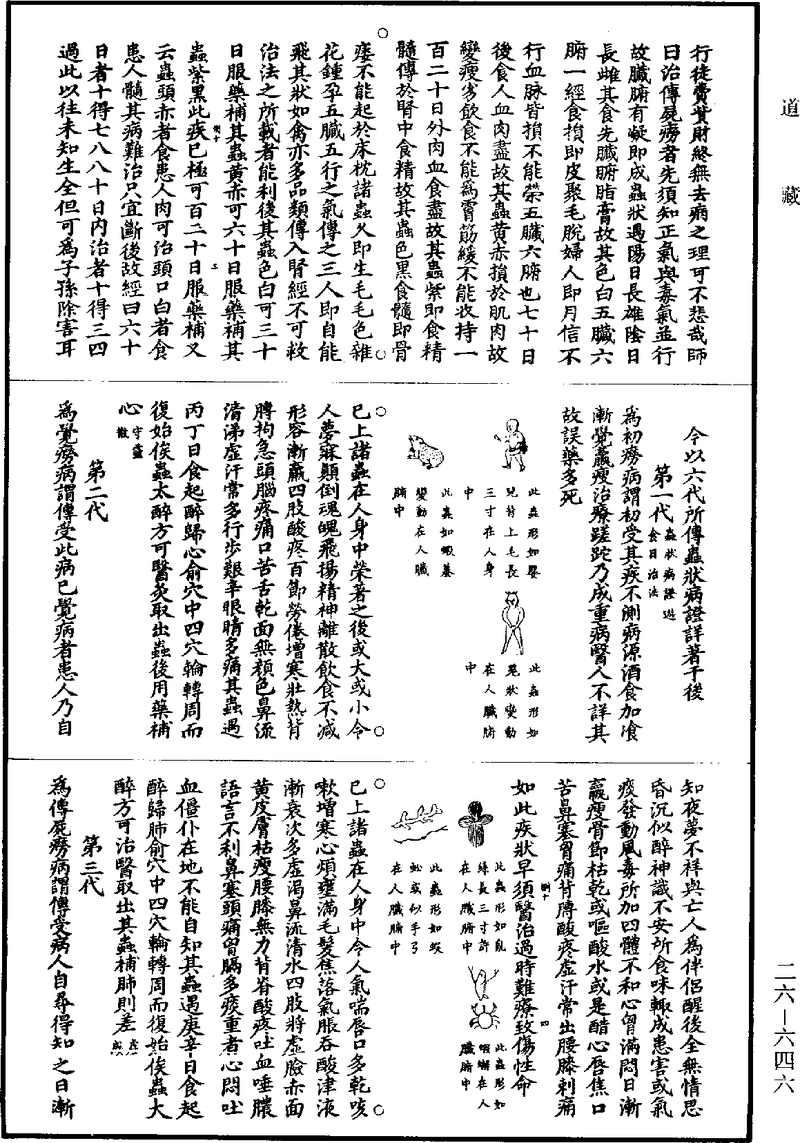 道藏
行徒費貲財終無去病之理可不悲哉師
曰治傳屍癆者先須知正氣與毒氣並行
故臟腑有凝即成蟲狀遇陽日長雄陰日
長雌其食先臟腑脂膏故其色白五臟六
腑一經食損即皮聚毛脫婦人即月信不
行血脉皆損不能榮五臟六腑也七十日
後食人血肉盡故其蟲黃赤損於肌肉故
變瘦劣飲食不能為霄筋緩不能收持一
百二十日外肉血食盡故其蟲紫即食精
髓傳於腎中食精故其蟲色黑食髓即骨
痿不能起於床枕諸蟲久即生毛毛色雜
花鍾孕五臟五行之氣傳之三人即自能
飛其狀如禽亦多品類傳入腎經不可救
治法之所載者能利後其蟲色白可三十
日服藥補其蟲黃赤可六十日服藥補其
蟲紫黑此疾已極可百二十日服藥補又
云蟲頭赤者食患人肉可治頭口白者食
患人髓其病難治只宜斷後故經曰六十
日者十得七八八十日內治者十得三四
過此以往未知生全但可為子孫除害耳
今以六代所傳蟲狀病證詳著于後
第一代 蟲狀病證遊食日治法
為初癆病謂初受其疾不測病源酒食加飡
漸覺羸瘦治療蹉跎乃成重病醫人不詳其
故誤藥多死
此蟲形如嬰
兒背上毛長
三寸在人身
中
此蟲形如
鬼狀變動
在人臟腑
中
此蟲如蝦蟇
變動在人臟
腑中
已上諸蟲在人身中榮著之後或大或小令
人夢寐顛倒魂魄飛揚精神離散飲食不减
形容漸羸四肢酸疼百節勞倦增寒壯熱背
膊拘急頭腦疼痛口苦舌乾面無顏色鼻流
清涕虛汗常多行步艱辛眼睛多痛其蟲遇
丙丁日食起醉歸心俞穴中四穴輪轉周而
復始俟蟲太醉方可醫灸取出蟲後用藥補
心 守靈散
第二代
為覺癆病謂傳受此病已覺病者患人乃自
知夜夢不祥與亡人為伴侶醒後全無情思
昏沉似醉神識不安所食味輒成患害或氣
痰發動風毒所加四體不和心胷滿悶日漸
羸瘦骨節枯乾或嘔酸水或是醋心唇焦口
苦鼻塞胷痛背膊酸疼虛汗常出腰膝刺痛
如此疾狀早須醫治過時難療致傷性命
此蟲形如亂
絲長三寸許
在人臟腑中
此蟲形如
蝦蠏在人
臟腑中
此蟲形如蜈
蚣或似手弓
在人臟腑中
已上諸蟲在人身中令人氣喘唇口多乾咳
嗽增寒心煩壅滿毛髮焦落氣脹吞酸津液
漸衰次多虛渴鼻流清水四肢將虛臉赤面
黃皮膚枯瘦腰膝無力背脊酸疼吐血唾膿
語言不利鼻塞頭痛胷膈多痰重者心悶吐
血僵仆在地不能自知其蟲遇庚辛日食起
醉歸肺俞穴中四穴輪轉周而復始俟蟲大
醉方可治醫取出其蟲補肺則差
第三代
為傳屍癆病謂傳受病人自尋得知之日漸
二六—六四六